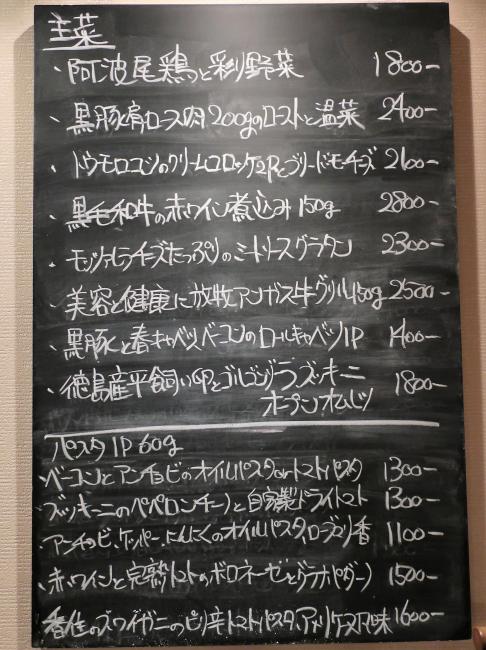 主菜
・阿波尾鶏っと彩り野菜 1800-
・黒豚肩ロース肉200gのローストと温菜 2400-
・トウモロコシのクリームコロッケ2Pとブリードモーチーズ 2100-
・黒毛和牛の赤ワイン煮込み150g 2800-
・モッツァレラチーズたっぷりのミートソースグラタン 2300-
・美容と健康に放牧アンガス牛グリル150g 2500-
・黒豚と春キャベツ、ベーコンのロールキャベツ1P 1400-
・徳島産平飼い卵とゴルゴンゾーラ、ズッキーニ
オープンオムレツ 1800-
パスタ1P 60g
・ベーコンとアンチョビのオイルパスタorトマトパスタ 1300-
・ズッキーニのペペロンチーノと自家製ドライトマト 1300-
・アンチョビ、ケッパー、にんにくのオイルパスタ、ローズマリー香 1100-
・赤ワインと完熟トマトのボロネーゼとグラナパダーノ 1500-
・香住のズワイガニのピリ辛トマトパスタ、アメリケーヌ風味 1600-